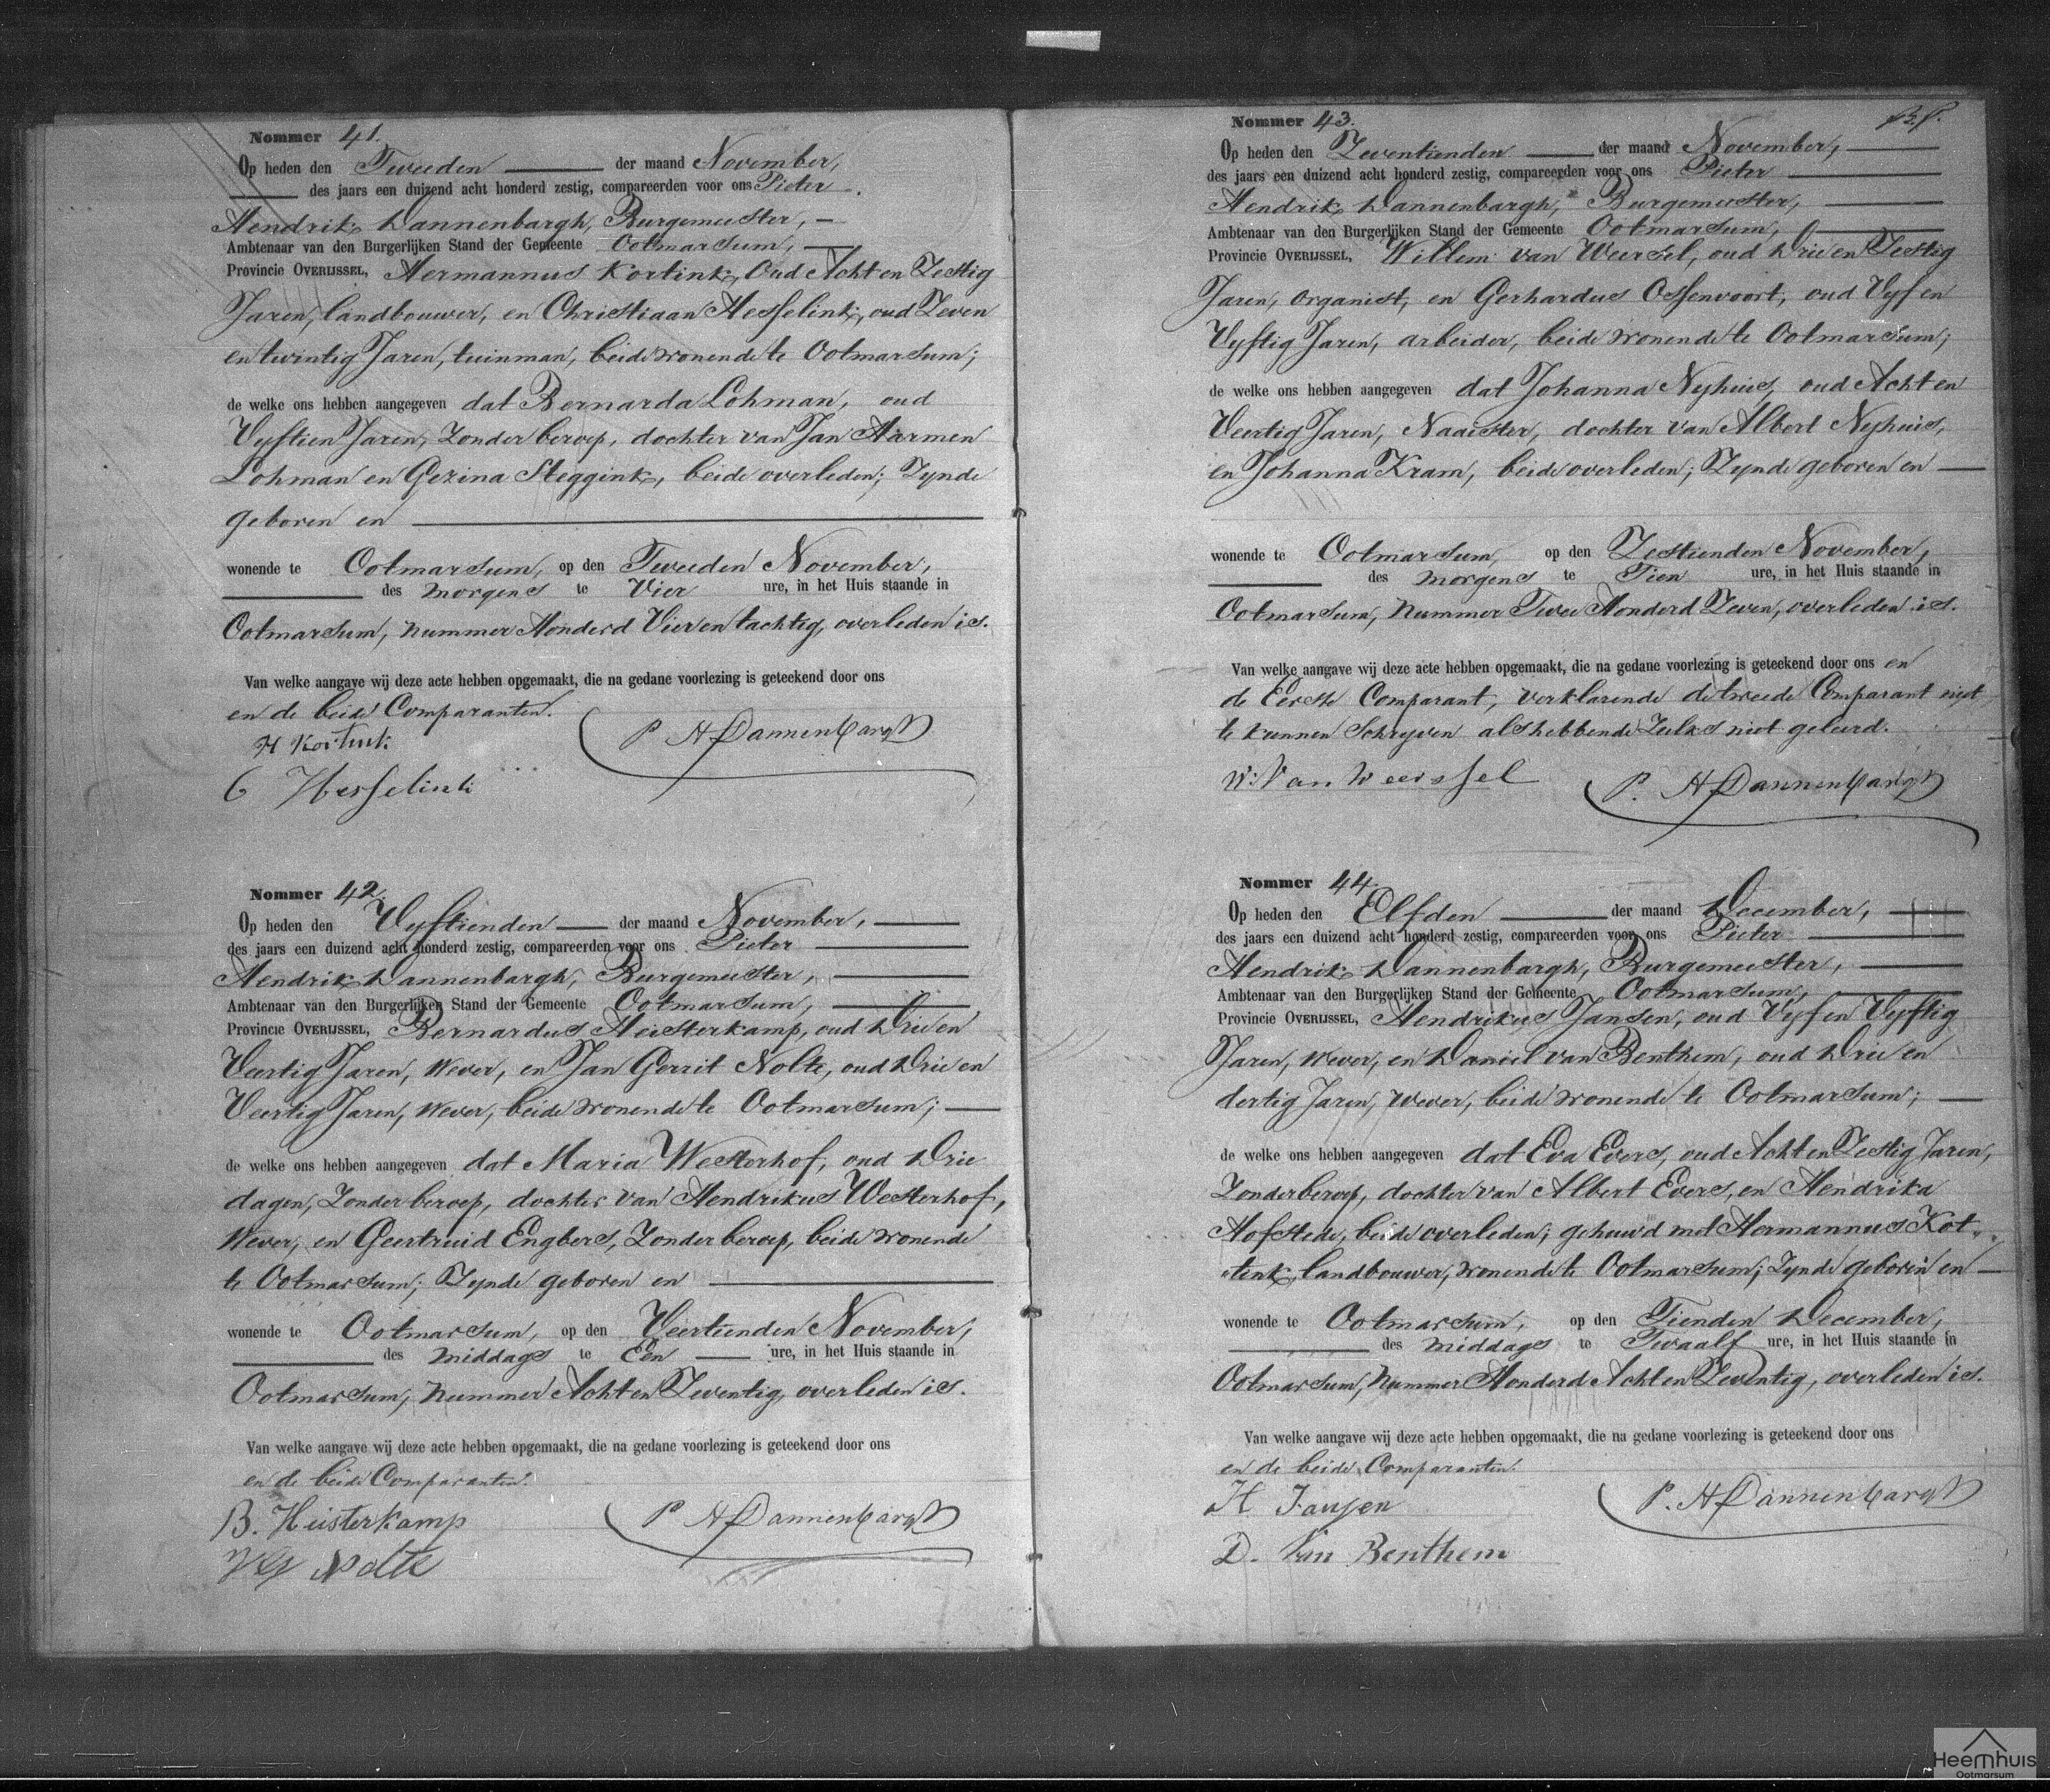 Nommer 41.
Op heden den Tweeden der maand November,
des jaars een duizend acht honderd zestig, compareerden voor ons Pieter
Hendrik Dannenbargh, Burgemeester,
Ambtenaar van den Burgerlijken Stand der Gemeente Ootmarsum,
Provincie OVERIJSSEL, Hermannus Kortink, oud Acht en Zestig
Jaren, landbouwer, en Christiaan Hesselink, oud Zeven
en twintig Jaren, tuinman, beide wonende te Ootmarsum;
de welke ons hebben aangegeven dat Bernarda Lohman, oud
Vyftien Jaren, Zonder beroep, dochter van Jan Harmen
Lohman en Gezina Steggink, beide overleden; Zynde
geboren en
wonende te Ootmarsum, op den Tweeden November,
des morgens te Vier ure, in het Huis staande in
Ootmarsum, nummer Honderd Vier en tachtig, overleden is.
Van welke aangave wij deze acte hebben opgemaakt, die na gedane voorlezing is geteekend door ons
en de beide Comparanten.
H Kortink
P H Dannenbargh
C Hesselink
Nommer 42.
Op heden den Vyftienden der maand November,
des jaars een duizend acht honderd zestig, compareerden voor ons Pieter
Hendrik Dannenbargh, Burgemeester,
Ambtenaar van den Burgerlijken Stand der Gemeente Ootmarsum,
Provincie OVERIJSSEL, Bernardus Heisterkamp, oud Drie en
Veertig Jaren, Wever, en Jan Gerrit Nolte, oud Drie en
Veertig Jaren, Wever, beide wonende te Ootmarsum;
de welke ons hebben aangegeven dat Maria Westerhof, oud Drie
dagen, Zonder beroep, dochter van Hendrikus Westerhof,
Wever, en Geertruid Engbers, Zonder beroep, beide wonende
te Ootmarsum; Zynde geboren en
wonende te Ootmarsum, op den Veertienden November,
des middags te Een ure, in het Huis staande in
Ootmarsum, nummer Acht en Zeventig, overleden is.
Van welke aangave wij deze acte hebben opgemaakt, die na gedane voorlezing is geteekend door ons
en de beide Comparanten.
B. Heisterkamp
P H Dannenbargh
Nolte
Nommer 43.
Op heden den Zeventienden der maand November,
des jaars een duizend acht honderd zestig, compareerden voor ons Pieter
Hendrik Dannenbargh, Burgemeester,
Ambtenaar van den Burgerlijken Stand der Gemeente Ootmarsum,
Provincie OVERIJSSEL, Willem van Weersel, oud Drie en Zestig
Jaren, organist, en Gerhardus Ossenvoort, oud Vyf en
Vyftig Jaren, arbeider, beide wonende te Ootmarsum;
de welke ons hebben aangegeven dat Johanna Nyhuis, oud Acht en
Veertig Jaren, Naaister, dochter van Albert Nyhuis,
en Johanna Kram, beide overleden; Zynde geboren en
wonende te Ootmarsum, op den Zestienden November,
des morgens te Tien ure, in het Huis staande in
Ootmarsum, nummer Twee Honderd Zeven, overleden is.
Van welke aangave wij deze acte hebben opgemaakt, die na gedane voorlezing is geteekend door ons en
de Eerste Comparant, verklarende de tweede Comparant niet
te kunnen Schryven als hebbende Zulks niet geleerd.
W. Van Weerssel
P. H Dannenbargh
Nommer 44.
Op heden den Elfden der maand December,
des jaars een duizend acht honderd zestig, compareerden voor ons Pieter
Hendrik Dannenbargh, Burgemeester,
Ambtenaar van den Burgerlijken Stand der Gemeente Ootmarsum,
Provincie OVERIJSSEL, Hendrikus Jansen, oud Vyf en Vyftig
Jaren, Wever, en Daniel van Benthem, oud Drie en
dertig Jaren, Wever, beide wonende te Ootmarsum;
de welke ons hebben aangegeven dat Eva Evers, oud Acht en Zestig Jaren,
Zonder beroep, dochter van Albert Evers, en Hendrika
Hofstede, beide overleden; gehuwd met Hermannus Kot„
„tink, landbouwer, wonende te Ootmarsum; Zynde geboren en
wonende te Ootmarsum, op den Tienden December,
des middags te Twaalf ure, in het Huis staande in
Ootmarsum, Nummer Honderd Acht en Zeventig, overleden is.
Van welke aangave wij deze acte hebben opgemaakt, die na gedane voorlezing is geteekend door ons
en de beide Comparanten.
H Jansen
P. H Dannenbargh
D. Van Benthem
Heemhuis
Ootmarsum